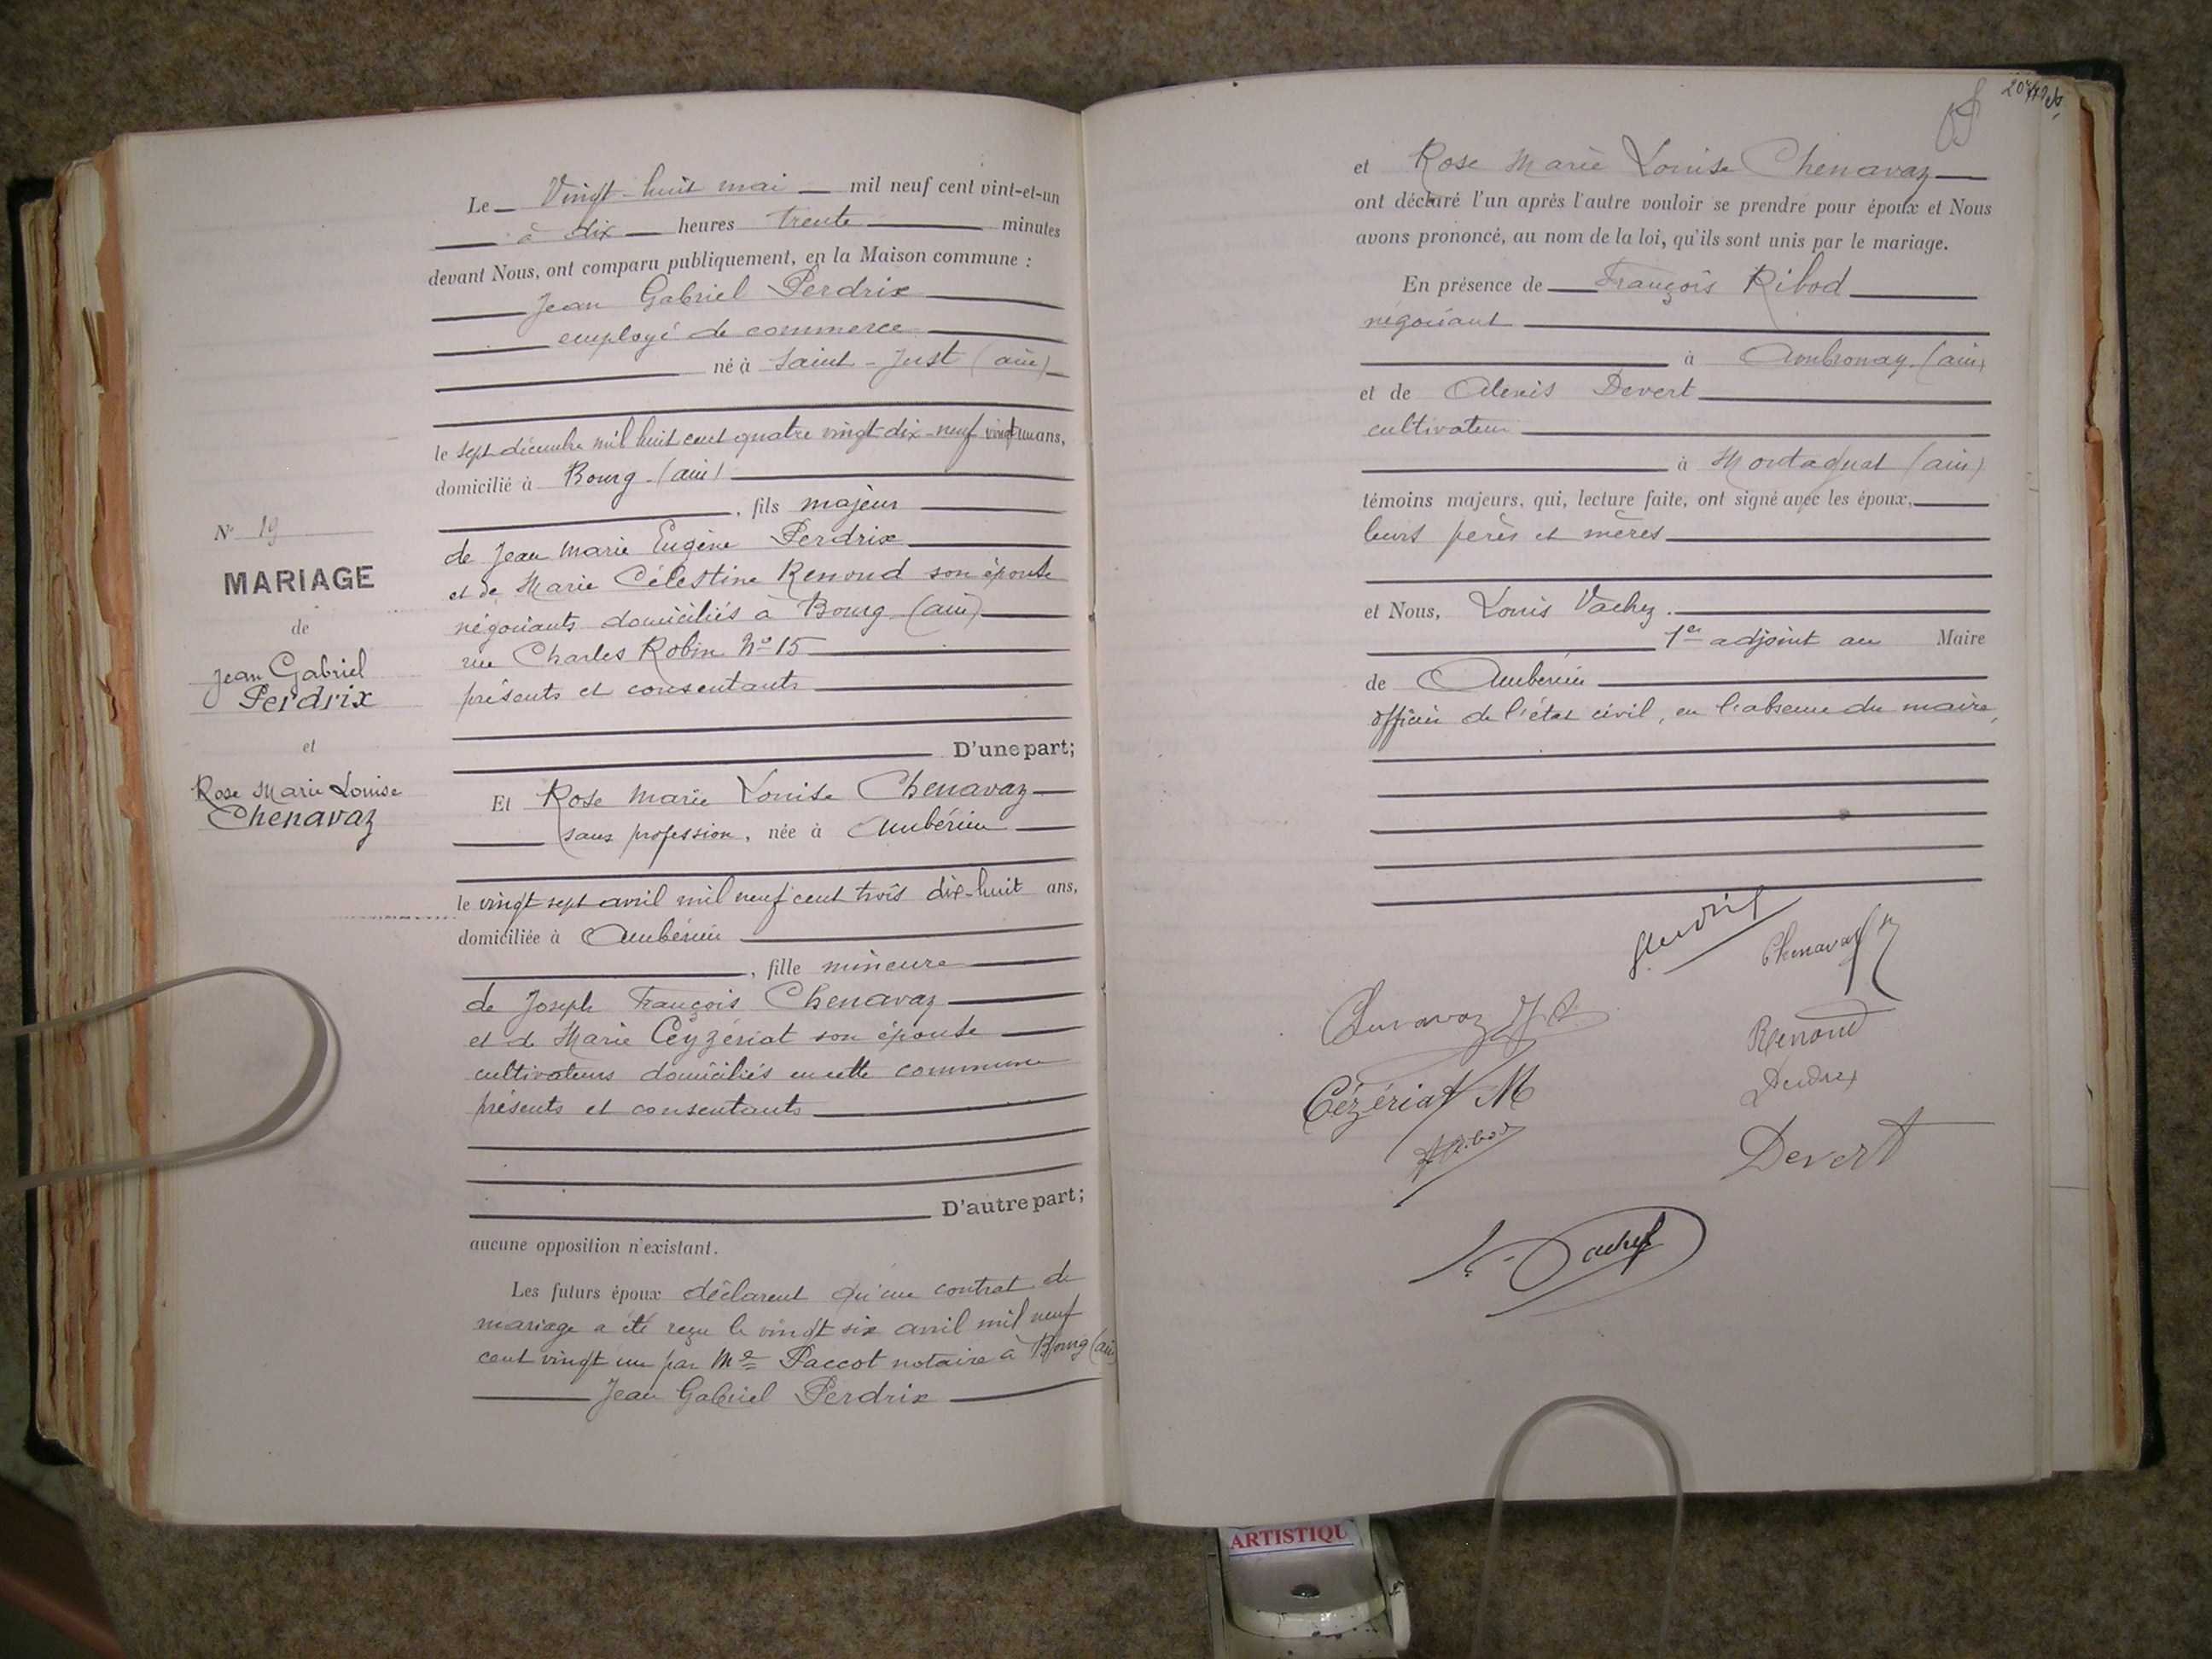 N° 19
MARIAGE
de
Jean Gabriel
Perdrix
et
Rose Marie Louise
Chenavaz
Le Vingt-huit mai mil neuf cent vint-et-un
à dix heures trente minutes
devant Nous, ont comparu publiquement, en la Maison commune :
Jean Gabriel Perdrix
employé de commerce
né à Saint-Just (ain)
le sept décembre mil huit cent quatre vingt dix-neuf vingt un ans,
domicilié à Bourg (ain)
, fils majeur
de Jean Marie Eugène Perdrix
et de Marie Célestine Renoud son épouse
négociants domiciliés à Bourg (ain)
rue Charles Robin N° 15
présents et consentants
D'une part;
Et Rose Marie Louise Chenavaz
sans profession, née à Ambérieu
le vingt sept avril mil neuf cent trois dix-huit ans,
domiciliée à Ambérieu
, fille mineure
de Joseph François Chenavaz
et d Marie Ceyzériat son épouse
cultivateurs domiciliés en cette commune
présents et consentants
D'autre part;
aucune opposition n'existant.
Les futurs époux déclarent qu'un contrat de
mariage a été reçu le vingt six avril mil neuf
cent vingt un par Me Paccot notaire à Bourg (ain)
Jean Gabriel Perdrix
et Rose Marie Louise Chenavaz
ont déclaré l'un après l'autre vouloir se prendre pour époux et Nous
avons prononcé, au nom de la loi, qu'ils sont unis par le mariage.
En présence de François Ribod
négociant
à Ambronay (ain)
et de Alexis Devert
cultivateur
à Montagnat (ain)
témoins majeurs, qui, lecture faite, ont signé avec les époux,
leurs pères et mères
et Nous, Louis Vachez.
1er adjoint au Maire
de Ambérieu
officier de l'état civil, en l'absence du maire,
Perdrix
Chenavaz
Chenavaz J F
Renoud
Cézériat M
Perdrix
Ribod
Devert
L. Vachez
ARTISTIQU